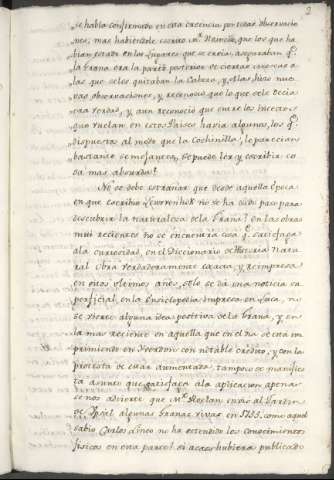 2
se habia confirmado en esta creencia por varias observacio
nes, mas habiendole escrito Mr. que los que ha
bian estado en los Lugares que se cria, aseguraban q.e
la Grana era la parte posterior de ciertos insectos a
las que se les quitaban la Cabeza, y Alas hizo nue
vas observaciones, y reconoció que lo que se le decia
era verdad, y aun reconoció que entre los insectos
que vuelan en estos Paises havia algunos, los q.e
dispuestos al modo que la Cochinilla, le parecian
bastante semejantes, se puede leer y escribir co
sa mas absurda?
No se debe estrañar que desde aquella Epoca
en que escribio no se ha dado paso para
descubrir la naturaleza de la Grana? en las obras
mui recientes no se encuentra cosa q.e satisfaga
ala curiosidad, en el Diccionario de Historia Natu
ral Obra verdaderamente exacta, y reimpresa
en estos ultimos años, se da una noticia su
perficial, en la Enciclopedia impresa en Luca, no
se vierte alguna idea positiva de la Grana, y en
la mas reciente en aquella que en el dia se está im
primiendo en Yverdon con notable crédito, y con la
protesta de estar aumentada, tampoco se manifies
ta asunto que satisfaga ala aplicacion apenas
se nos advierte que Mr. envió al Jardin
de Upsal algunas Granas vivas en 1755. como aquel
sabio Carlos Lineo no ha estendido los conocimientos
fisicos en esta parte? si acaso hubiera publicado